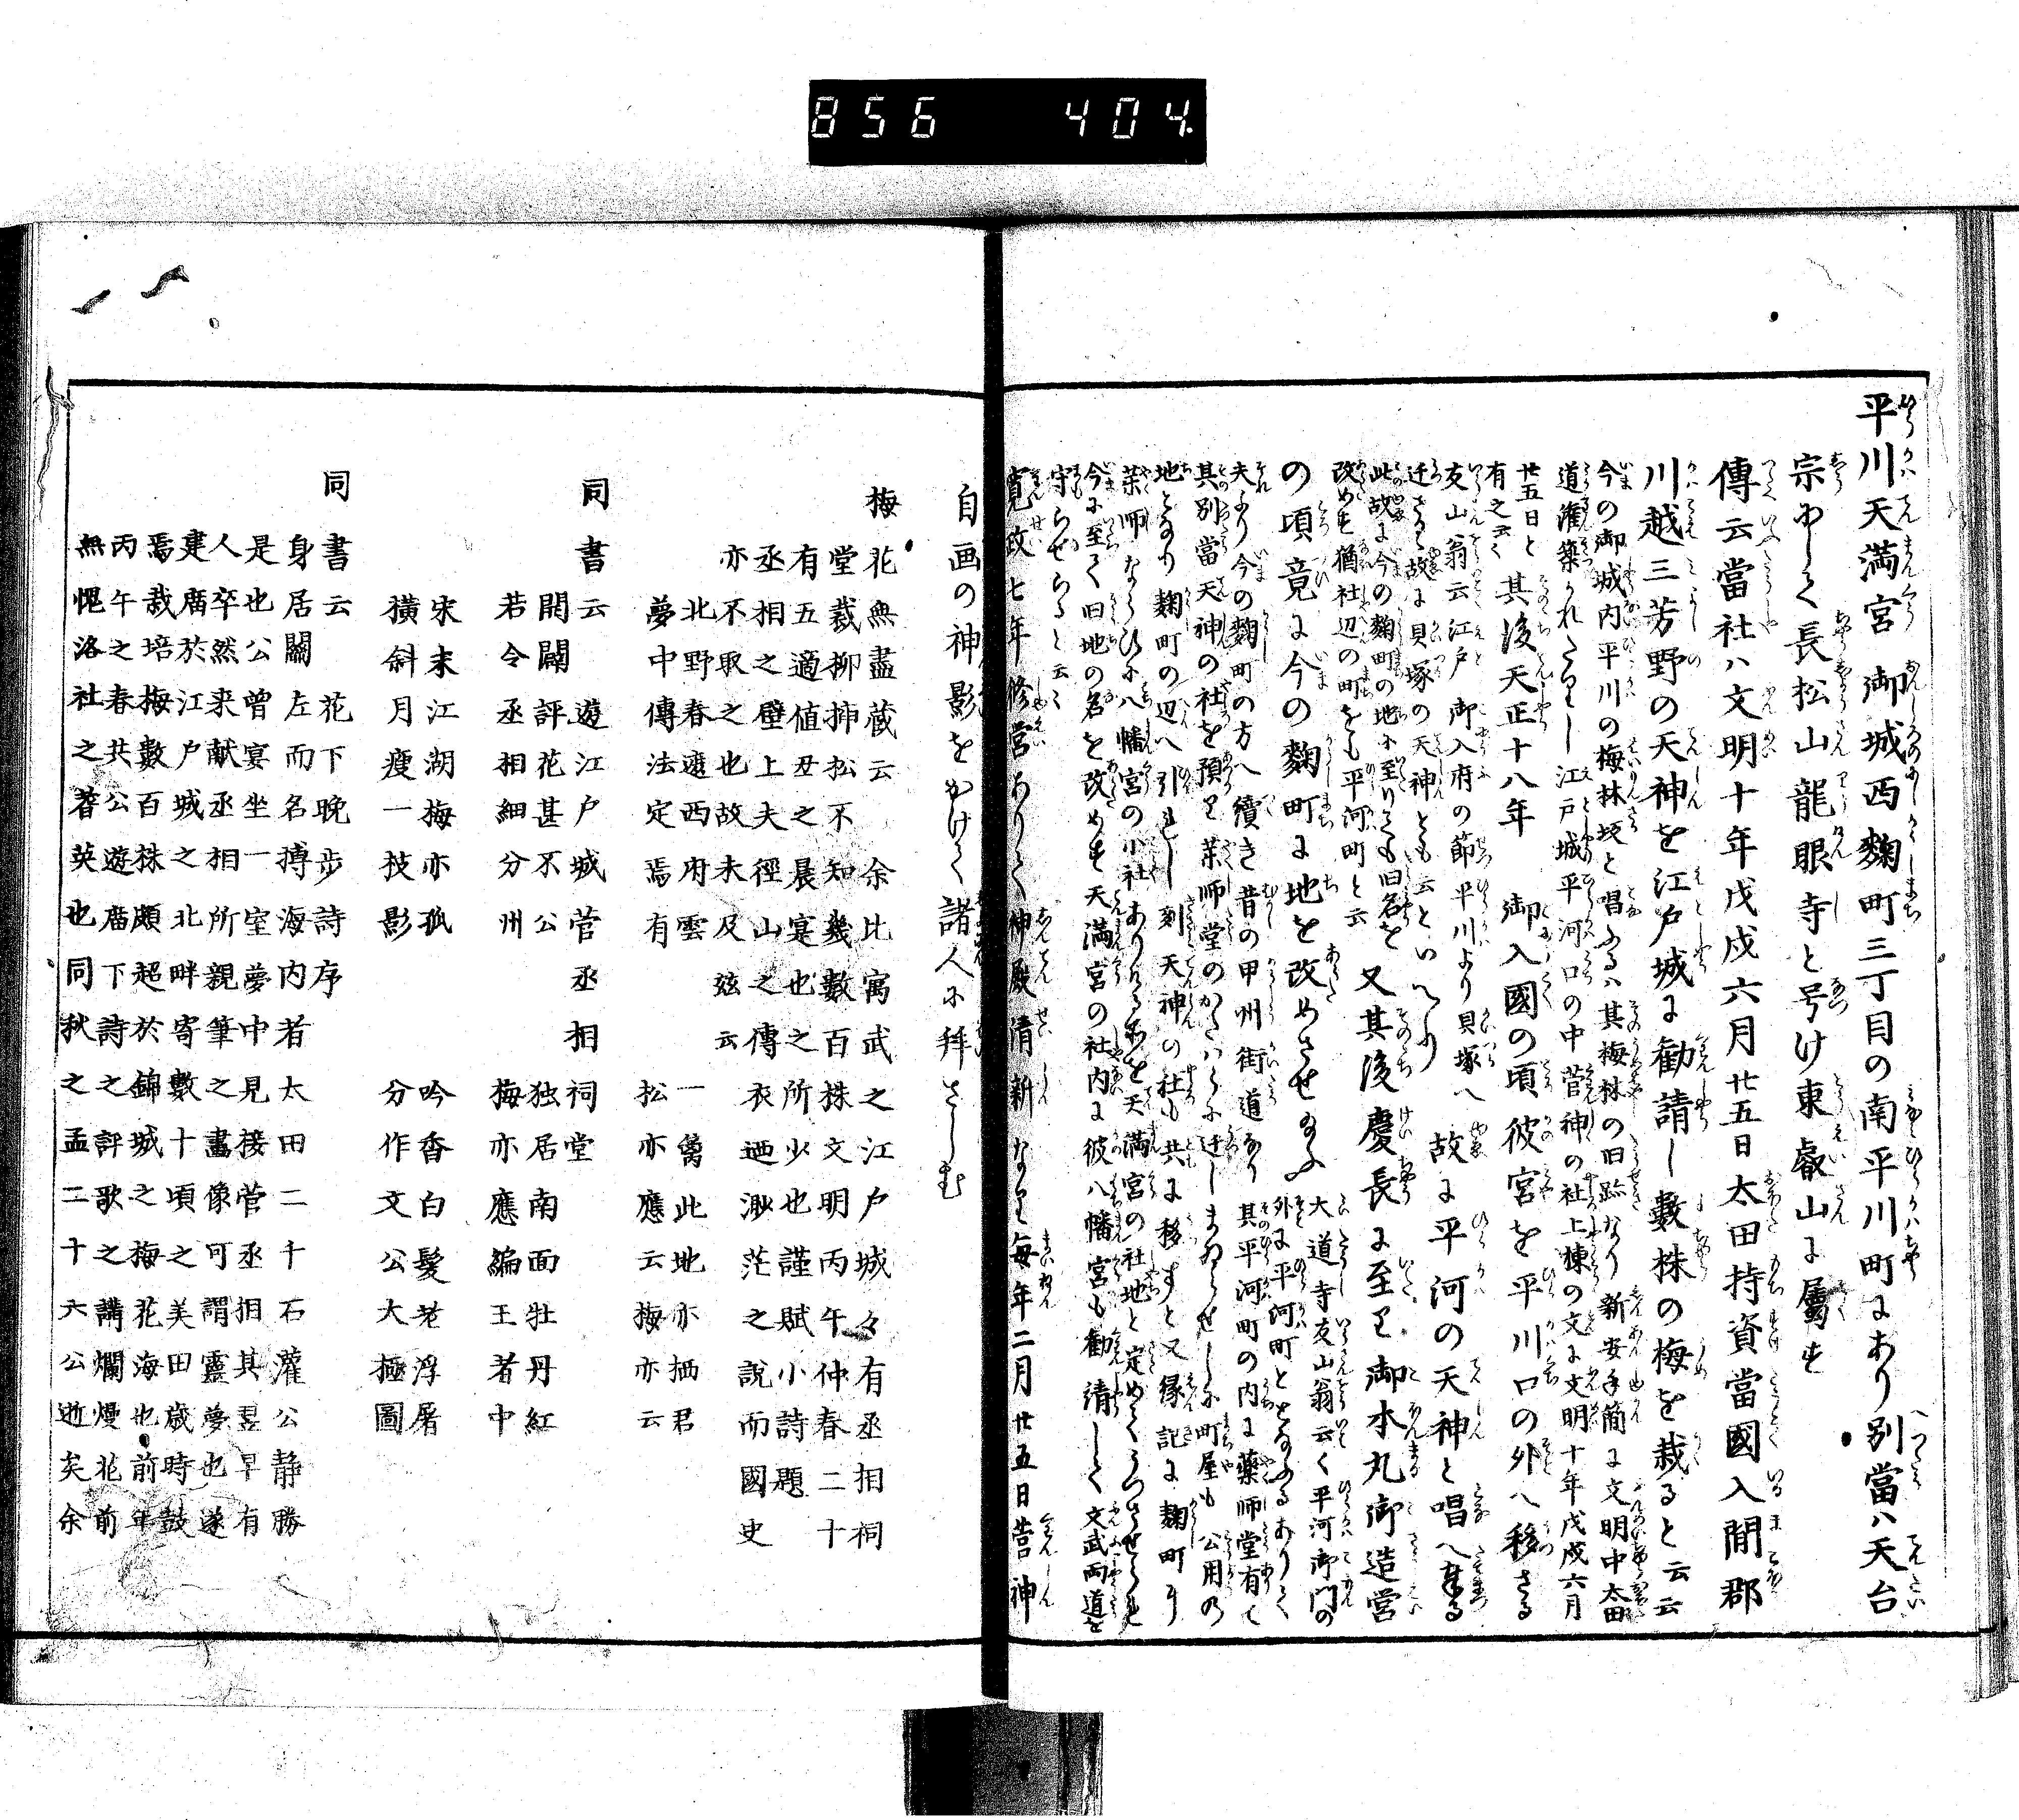 856 404.
平川天満宮 御城西麹町三丁目の南平川町にあり別當ハ天台
宗にして長松山龍眼寺と号け東叡山に屬す
傳云當社ハ文明十年戊戌六月廿五日太田持資當國入間郡
川越三芳野の天神を江戸城に勧請し藪株の梅を栽ると云云
今の御城内平川の梅林坂と唱ふるハ其梅林の旧跡なり新安手簡に文明中太田
道灌築かれたりし江戸城平河口の中菅神の社上棟の文に文明十年戊戌六月
廿五日と有之云く
其後天正十八年 御入國の頃彼宮を平川口の外へ移さる
友山翁云江戸御入府の節平川より貝塚へ
迁さる故に貝塚の天神とも云といへり
故に平河の天神と唱へ奉る
此故に今の麹町の地に至りても旧名を
改めす猶社辺の町をも平河町と云
又其後慶長に至り御本丸御造営
の頃竟に今の麹町に地を改めさせ給ふ
大道寺友山翁云く平河御門の
外に平河町となふるありて
夫より今の麹町の方へ續き昔の甲州街道なり其平河町の内に薬師堂有て
其別當天神の社を預り薬師堂のかたハらに迁しまゐらせしに町屋も公用の
地となり麹町の辺へ引れし刻天神の社も共に移すと又縁記に麹町に
薬師ならひに八幡宮の小社ありける所を天満宮の社地と定めてうつさせられ
今に至て旧地の名を改めす天満宮の社内に彼八幡宮も勧請して文武両道を
守らせらると云云
寛政七年修営ありて神殿清新なり毎年二月廿五日菅神
自画の神影をかけて諸人に拜さしむ
梅花無盡蔵云 余比寓武之江戸城々有丞相祠
堂裁柳挿松不知幾數百株文明丙午仲春二十
有五適値丑之晨宴也之所少也謹賦小詩題
丞相之壁上夫徑山之傳衣迺渺茫之說而國史
亦不取之也故未及玆云
北野春遊西府雲 一欝此地亦栖君
夢中傳法定焉有 松亦應云梅亦云
同書云 遊江戸城菅丞相祠堂
開闢評花甚不公 独居南面牡丹紅
若令丞相細分州 梅亦應編王者中
宋末江湖梅亦孤 吟香白髪老浮屠
横斜月瘦一枝影 分作文公大極圖
同書云 花下晚步詩序
身居關左而名搏海内者太田二千石灌公静勝
是也公曾宴坐一室夢中見接菅丞相其翌早有
人卒然来献丞相所親筆之畫像可謂靈夢也遂
建廣於江戸城之北畔寄數十頃之美田歳時鼓
焉裁培梅數百株頗超於錦城之梅花海也前年
丙午之春共公遊廣下詩之評歌之講爛熳花前
無愧洛社之耆英也同秋之孟二十六公逝矣余